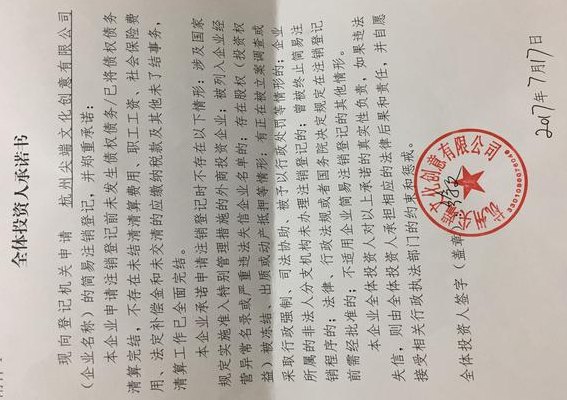 全体投资人承诺书
现向登记机关申请 杭州尖端文化创意有限公司
(企业名称)的简易注销登记,并郑重承诺:
本企业申请注销登记前未发生债权债务/已将债权债务
清算完结,不存在未结清清算费用、职工工资、社会保险费
用、法定补偿金和未交清的应缴纳税款及其他未了结事务,
清算工作已全面完结。
本企业承诺申请注销登记时不存在以下情形:涉及国家
规定实施准入特别管理措施的外商投资企业;被列入企业经
营异常名录或严重违法失信企业名单的;存在股权(投资权
益)被冻结、出质或动产抵押等情形;有正在被立案调查或
采取行政强制、司法协助、被予以行政处罚等情形的;企业
所属的非法人分支机构未办理注销登记的;曾被终止简易注
销程序的;法律、行政法规或者国务院决定规定在注销登记
前需经批准的;不适用企业简易注销登记的其他情形。
本企业全体投资人对以上承诺的真实性负责,如果违法
失信,则由全体投资人承担相应的法律后果和责任,并自愿
接受相关行政执法部门的约束和惩戒。
全体投资人签字(盖章)
杭州尖端文化创意有限公司
2017年7月17日